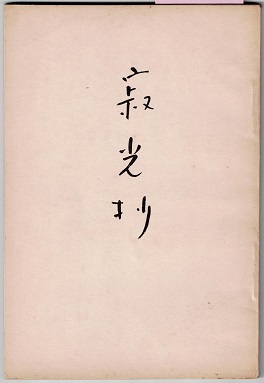 寂光抄